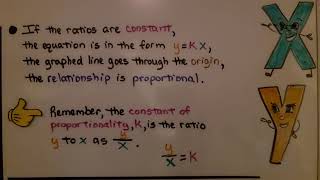 If the ratios are constant,
the equation is in the form y=Kx,
the graphed line goes through the origin,
the relationship is proportional.
Remember, the constant of
proportionality, K, is the ratio
y to x as y/x.
y/x=K
X
y